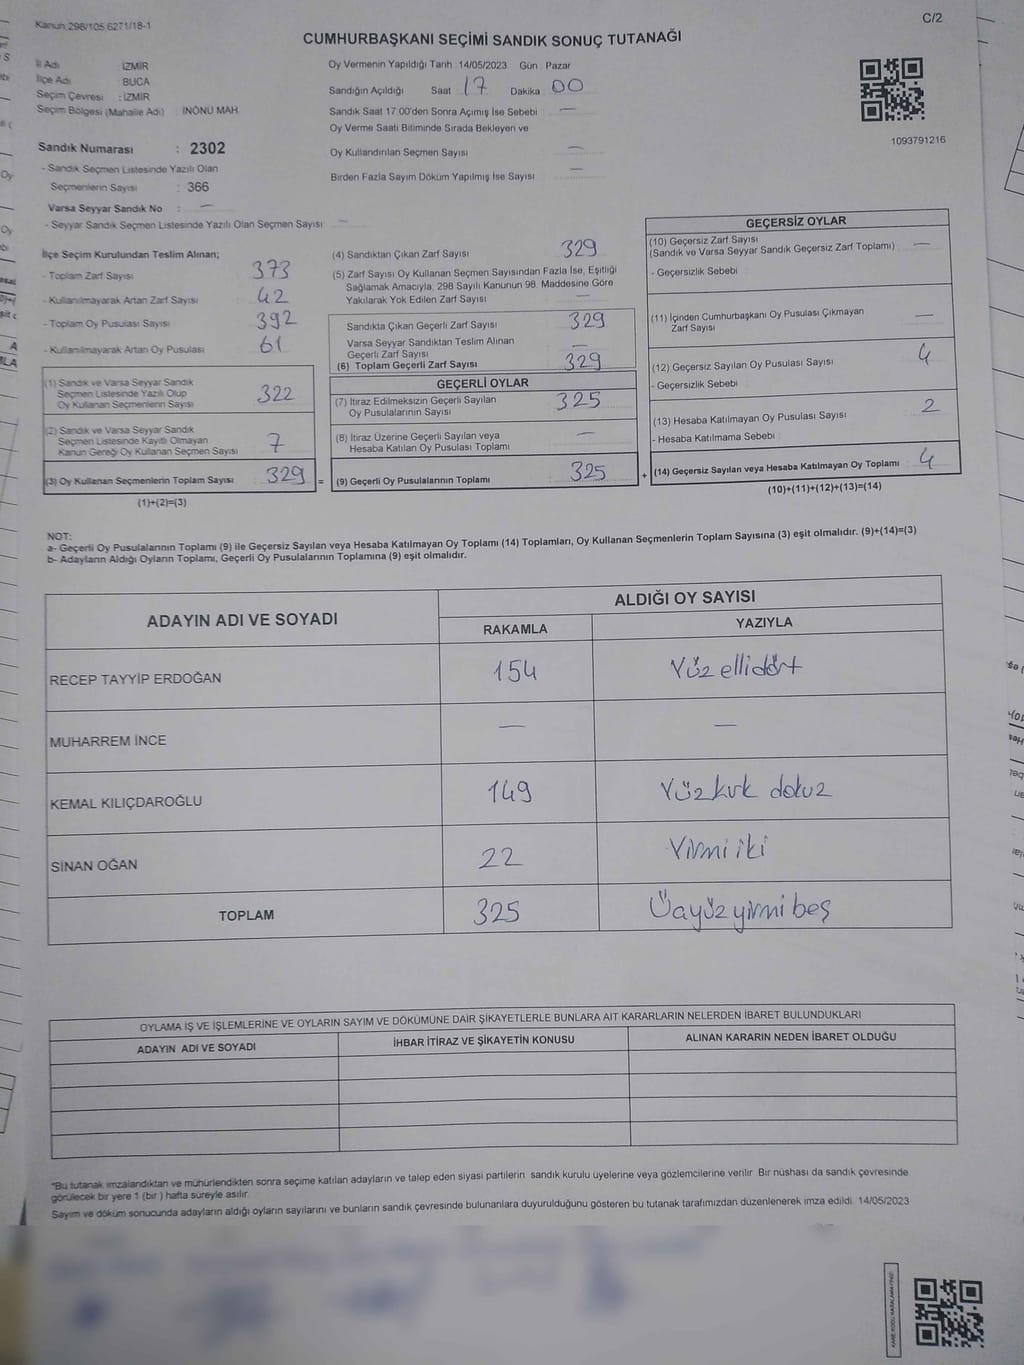 Kanun:298/105,6271/18-1
C/2
CUMHURBAŞKANI SEÇİMİ SANDIK SONUÇ TUTANAĞI
İl Adı : İZMİR
İlçe Adı : BUCA
Seçim Çevresi : İZMİR
Seçim Bölgesi (Mahalle Adı) : İNÖNÜ MAH.
Sandık Numarası : 2302
- Sandık Seçmen Listesinde Yazılı Olan
Seçmenlerin Sayısı : 366
Varsa Seyyar Sandık No : —
- Seyyar Sandık Seçmen Listesinde Yazılı Olan Seçmen Sayısı : —
Oy Vermenin Yapıldığı Tarih : 14/05/2023 Gün : Pazar
Sandığın Açıldığı Saat : 17 Dakika : 00
Sandık Saat 17:00'den Sonra Açımış İse Sebebi : —
Oy Verme Saati Bitiminde Sırada Bekleyen ve
Oy Kullandırılan Seçmen Sayısı : —
Birden Fazla Sayım Döküm Yapılmış İse Sayısı : —
1093791216
İlçe Seçim Kurulundan Teslim Alınan;
- Toplam Zarf Sayısı : 373
- Kullanılmayarak Artan Zarf Sayısı : 42
- Toplam Oy Pusulası Sayısı : 392
- Kullanılmayarak Artan Oy Pusulası : 61
(1) Sandık ve Varsa Seyyar Sandık
Seçmen Listesinde Yazılı Olup
Oy Kullanan Seçmenlerin Sayısı : 322
(2) Sandık ve Varsa Seyyar Sandık
Seçmen Listesinde Kayıtlı Olmayan
Kanun Gereği Oy Kullanan Seçmen Sayısı : 7
(3) Oy Kullanan Seçmenlerin Toplam Sayısı : 329
(1)+(2)=(3)
=
(4) Sandıktan Çıkan Zarf Sayısı : 329
(5) Zarf Sayısı Oy Kullanan Seçmen Sayısından Fazla İse, Eşitliği
Sağlamak Amacıyla, 298 Sayılı Kanunun 98. Maddesine Göre
Yakılarak Yok Edilen Zarf Sayısı : —
Sandıkta Çıkan Geçerli Zarf Sayısı : 329
Varsa Seyyar Sandıktan Teslim Alınan
Geçerli Zarf Sayısı : —
(6) Toplam Geçerli Zarf Sayısı : 329
GEÇERLİ OYLAR
(7) İtiraz Edilmeksizin Geçerli Sayılan
Oy Pusulalarının Sayısı : 325
(8) İtiraz Üzerine Geçerli Sayılan veya
Hesaba Katılan Oy Pusulası Toplamı : —
(9) Geçerli Oy Pusulalarının Toplamı : 325
+
GEÇERSİZ OYLAR
(10) Geçersiz Zarf Sayısı
(Sandık ve Varsa Seyyar Sandık Geçersiz Zarf Toplamı) : —
- Geçersizlik Sebebi :
(11) İçinden Cumhurbaşkanı Oy Pusulası Çıkmayan
Zarf Sayısı : —
(12) Geçersiz Sayılan Oy Pusulası Sayısı : 4
- Geçersizlik Sebebi :
(13) Hesaba Katılmayan Oy Pusulası Sayısı : 2
- Hesaba Katılmama Sebebi :
(14) Geçersiz Sayılan veya Hesaba Katılmayan Oy Toplamı : 4
(10)+(11)+(12)+(13)=(14)
NOT:
a- Geçerli Oy Pusulalarının Toplamı (9) ile Geçersiz Sayılan veya Hesaba Katılmayan Oy Toplamı (14) Toplamları, Oy Kullanan Seçmenlerin Toplam Sayısına (3) eşit olmalıdır. (9)+(14)=(3)
b- Adayların Aldığı Oyların Toplamı, Geçerli Oy Pusulalarının Toplamına (9) eşit olmalıdır.
ADAYIN ADI VE SOYADI
ALDIĞI OY SAYISI
RAKAMLA YAZIYLA
RECEP TAYYİP ERDOĞAN 154 Yüz ellidört
MUHARREM İNCE — —
KEMAL KILIÇDAROĞLU 149 Yüzkırk dokuz
SİNAN OĞAN 22 Yirmi iki
TOPLAM 325 Üçyüzyirmi beş
OYLAMA İŞ VE İŞLEMLERİNE VE OYLARIN SAYIM VE DÖKÜMÜNE DAİR ŞİKAYETLERLE BUNLARA AİT KARARLARIN NELERDEN İBARET BULUNDUKLARI
ADAYIN ADI VE SOYADI İHBAR İTİRAZ VE ŞİKAYETİN KONUSU ALINAN KARARIN NEDEN İBARET OLDUĞU
*Bu tutanak imzalandıktan ve mühürlendikten sonra seçime katılan adayların ve talep eden siyasi partilerin sandık kurulu üyelerine veya gözlemcilerine verilir. Bir nüshası da sandık çevresinde
görülecek bir yere 1 (bir ) hafta süreyle asılır.
Sayım ve döküm sonucunda adayların aldığı oyların sayılarını ve bunların sandık çevresinde bulunanlara duyurulduğunu gösteren bu tutanak tarafımızdan düzenlenerek imza edildi. 14/05/2023
KARE KODU KARALAMAYINIZ!